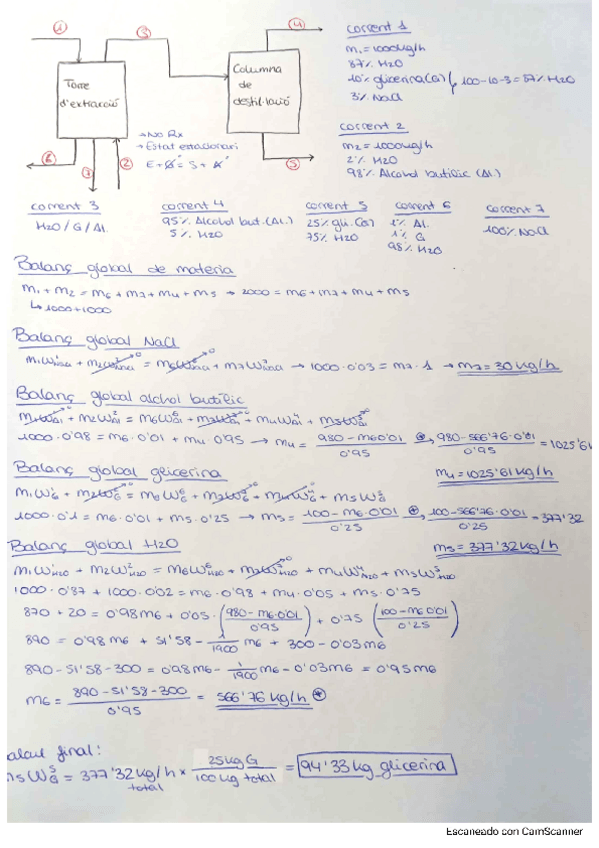 1
3
4
Torre d'extracció
Columna de destil·lació
→ No Rx
→ Estat estacionari
E + G = S + A
6
7
2
5
corrent 1
m₁ = 1000kg/h
87% H2O
10% glicerina (G) 100-10-3 = 87% H2O
3% NaCl
corrent 2
m2 = 1000kg/h
2% H2O
98% Alcohol butílic (Al.)
corrent 3
H2O / G / Al.
corrent 4
95% Alcohol but. (Al.)
5% H2O
corrent 5
25% gli. (G)
75% H2O
corrent 6
1% Al.
1% G
98% H2O
corrent 7
100% NaCl
Balanç global de materia
m1 + m2 = m6 + m7 + m4 + m5 → 2000 = m6 + m7 + m4 + m5
↳ 1000+1000
Balanç global NaCl
m1W¹NaCl + m2W²NaCl⁰ = m6W⁶NaCl⁰ + m7W⁷NaCl → 1000·0'03 = m7·1 → m7 = 30 kg/h
Balanç global alchol butílic
m1W¹Al + m2W²Al = m6W⁶Al + m7W⁷Al + m4W⁴Al + m5W⁵Al⁰
1000·0'98 = m6·0'01 + m4·0'95 → m4 = (980 - m6 0'01)/0'95 ⊛→ (980-566'76·0'01)/0'95 = 1025'61
m4 = 1025'61 kg/h
Balanç global glicerina
m1W¹G + m2W²G⁰ = m6W⁶G + m7W⁷G⁰ + m4W⁴G⁰ + m5W⁵G
1000·0'1 = m6·0'01 + m5·0'25 → m5 = (100 - m6·0'01)/0'25 ⊛→ (100-566'76·0'01)/0'25 = 377'32
m5 = 377'32 kg/h
Balanç global H2O
m1W¹H2O + m2W²H2O = m6W⁶H2O + m7W⁷H2O⁰ + m4W⁴H2O + m5W⁵H2O
1000·0'87 + 1000·0'02 = m6·0'98 + m4·0'05 + m5·0'75
870 + 20 = 0'98m6 + 0'05·((980-m6·0'01)/0'95) + 0'75 ((100-m6 0'01)/0'25)
890 = 0'98 m6 + 51'58 - 1/1900 m6 + 300 - 0'03m6
890-51'58-300 = 0'98m6 - 1/1900 m6 - 0'03m6 = 0'95m6
m6 = (890-51'58-300)/0'95 = 566'76 kg/h ⊛
alcul final:
m5W⁵G = 377'32 kg/h total × 25kg G/100 kg total = 94'33 kg glicerina
Escaneado con CamScanner